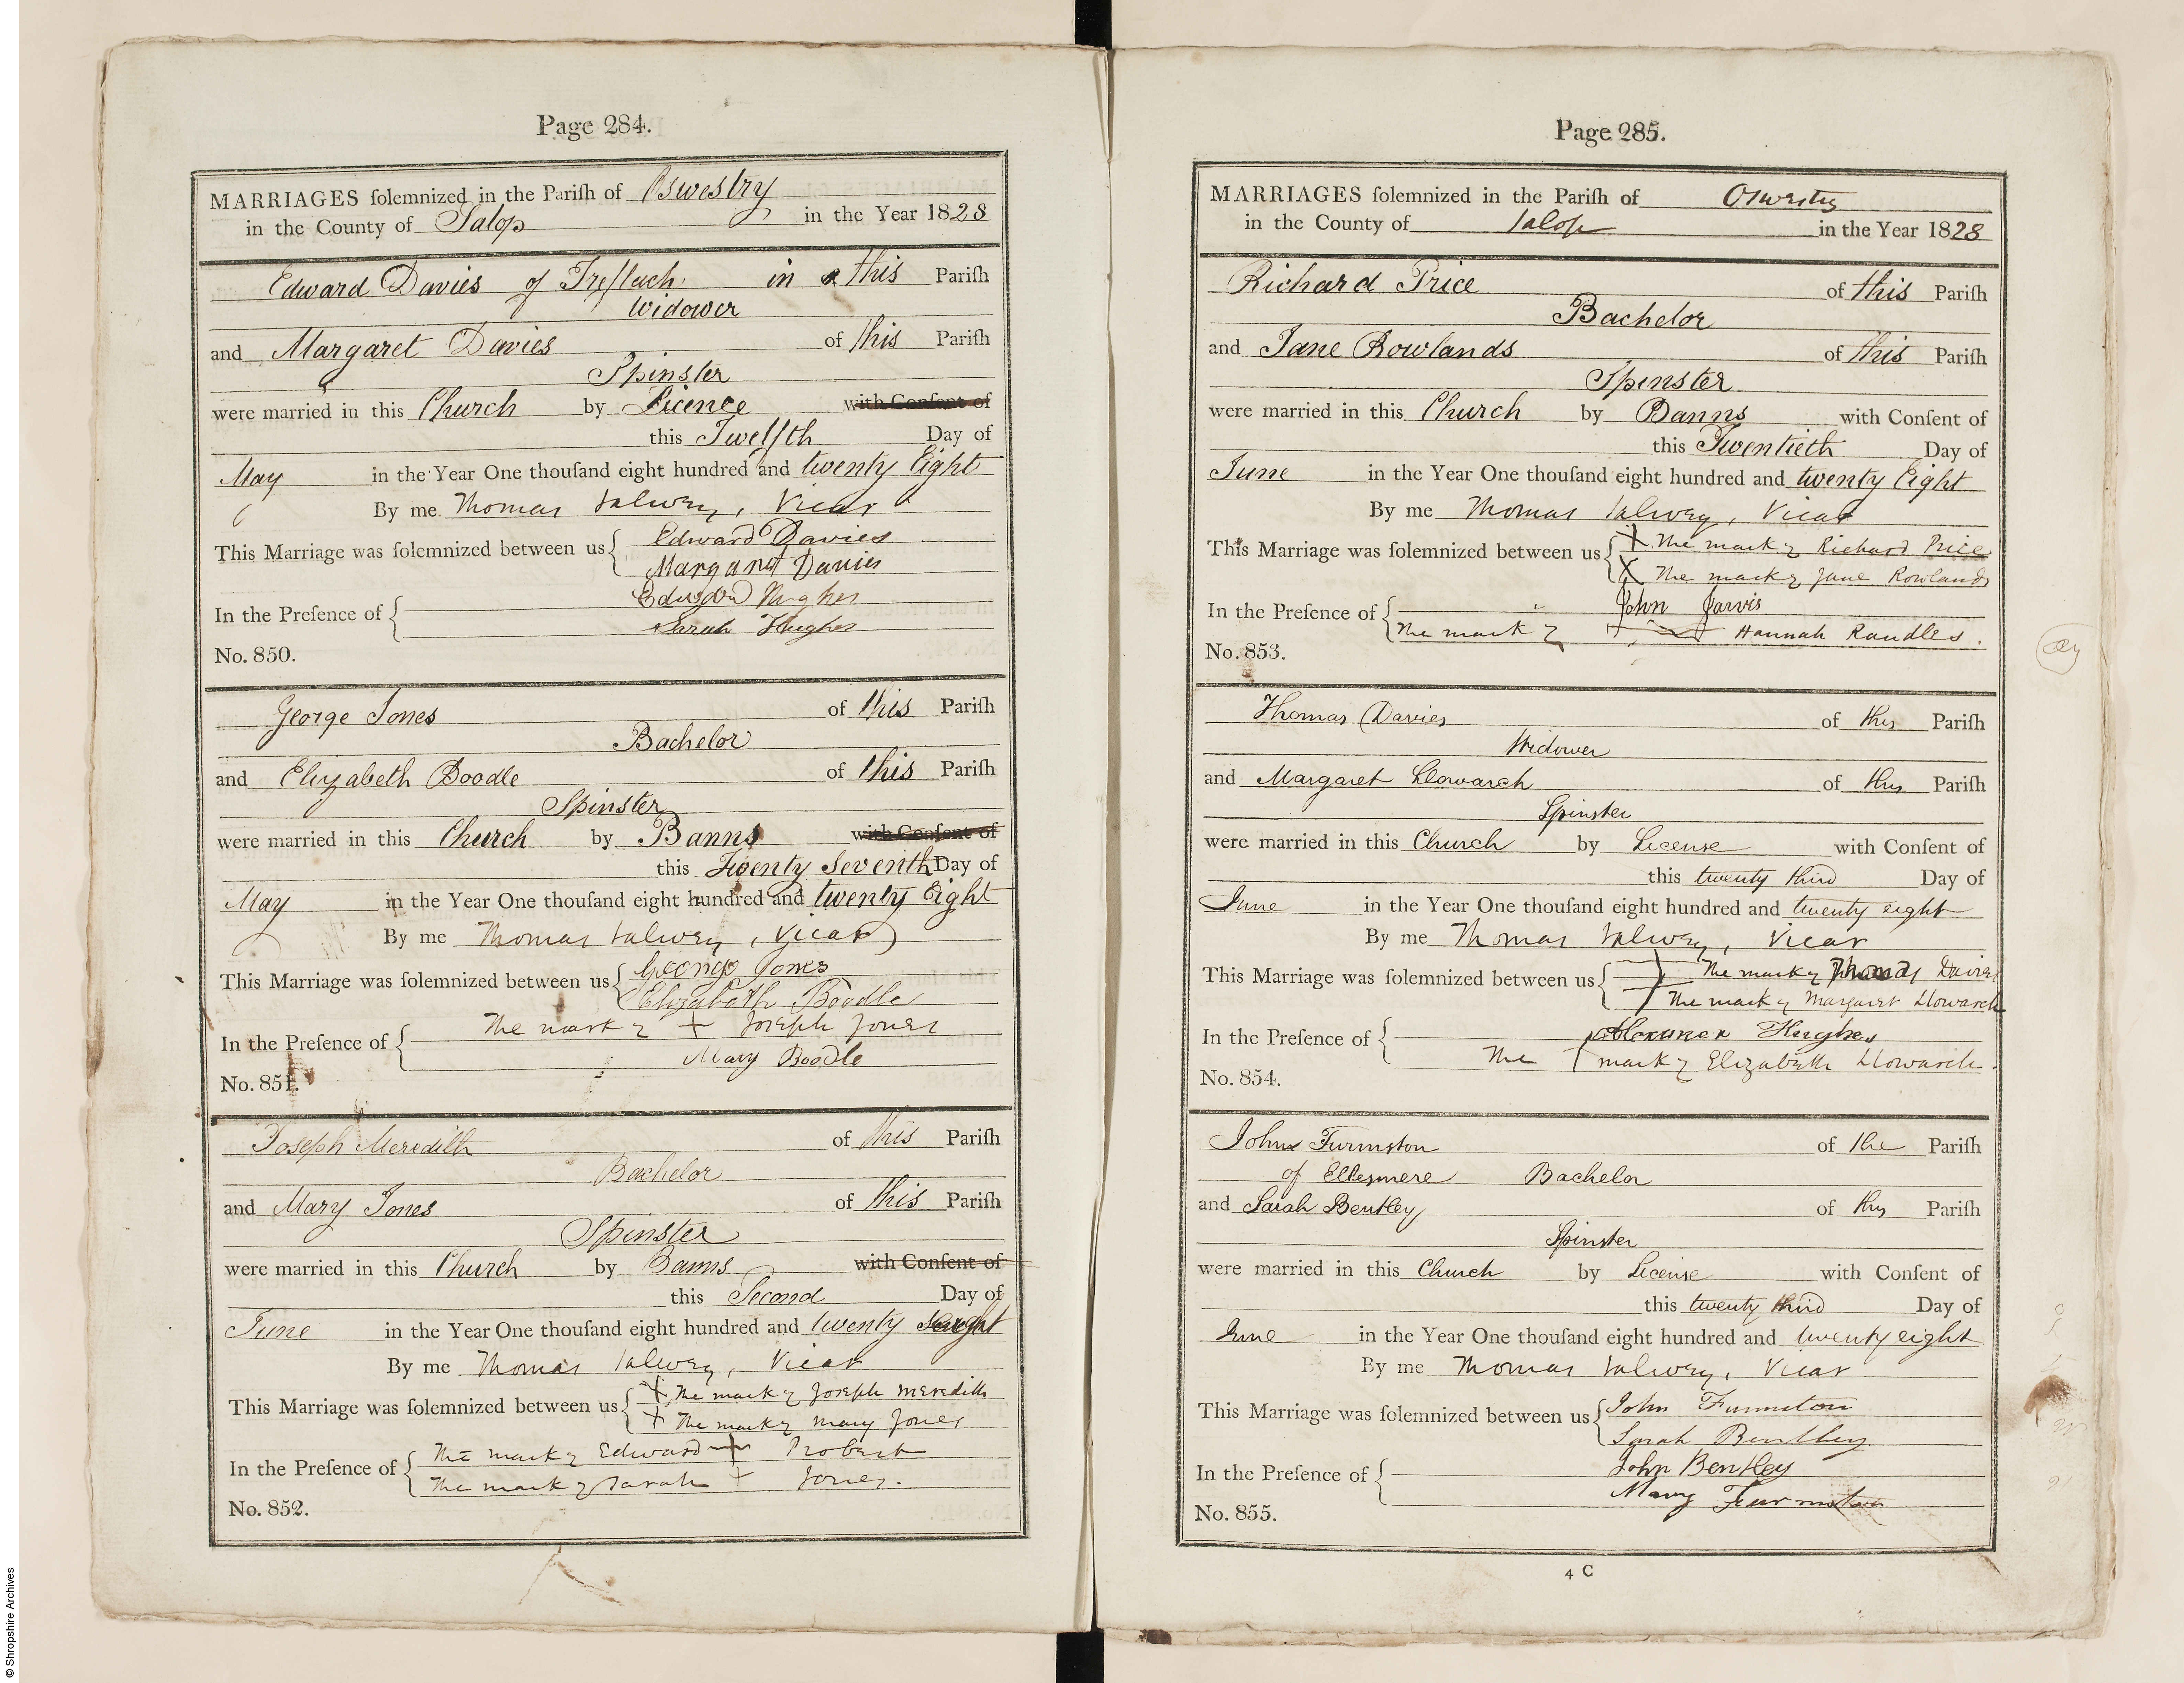 Page 284.
MARRIAGES ſolemnized in the Pariſh of Oswestry
in the County of Salop in the Year 1828
Edward Davies of Treflach in this Pariſh
Widower
and Margaret Davies of this Pariſh
Spinster
were married in this Church by Licence with Conſent of
this Twelfth Day of
May in the Year One thouſand eight hundred and twenty Eight
By me Thomas Salwey, Vicar
This Marriage was ſolemnized between us Edward Davies
Margaret Davies
In the Preſence of Hughes
Sarah Hughes
No. 850.
George Jones of this Pariſh
Bachelor
and Elizabeth Boodle of this Pariſh
Spinster
were married in this Church by Banns with Conſent of
this Twenty Seventh Day of
May in the Year One thouſand eight hundred and twenty Eight
By me Thomas Salwey, Vicar
This Marriage was ſolemnized between us George Jones
Elizabeth Boodle
In the Preſence of The mark of + Joseph Jones
Mary Boodle
No. 851.
Joseph Meredith of this Pariſh
Bachelor
and Mary Jones of this Pariſh
Spinster
were married in this Church by Banns with Conſent of
this Second Day of
June in the Year One thouſand eight hundred and twenty Eight
By me Thomas Salwey, Vicar
This Marriage was ſolemnized between us + The mark of Joseph Meredith
+ The mark of Mary Jones
In the Preſence of The mark of Edward + Probert
The mark of Sarah + Jones.
No. 852.
Page 285.
MARRIAGES ſolemnized in the Pariſh of Oswestry
in the County of Salop in the Year 1828
Richard Price of this Pariſh
Bachelor
and Jane Rowlands of this Pariſh
Spinster
were married in this Church by Banns with Conſent of
this Twentieth Day of
June in the Year One thouſand eight hundred and twenty Eight
By me Thomas Salwey, Vicar
This Marriage was ſolemnized between us + The mark of Richard Price
X The mark of Jane Rowlands
In the Preſence of John Jarvis
The mark of + Hannah Randles.
No. 853.
Thomas Davies of this Pariſh
Widower
and Margaret Llowarch of this Pariſh
Spinster
were married in this Church by License with Conſent of
this twenty third Day of
June in the Year One thouſand eight hundred and twenty eight
By me Thomas Salwey, Vicar
This Marriage was ſolemnized between us + The mark of Thomas Davies
+ The mark of Margaret Llowarch
In the Preſence of Hughes
The + mark of Elizabeth Llowarch.
No. 854.
John Furmston of the Pariſh
of Ellesmere Bachelor
and Sarah Bentley of this Pariſh
Spinster
were married in this Church by License with Conſent of
this twenty third Day of
June in the Year One thouſand eight hundred and twenty eight
By me Thomas Salwey, Vicar
This Marriage was ſolemnized between us John Furmston
Sarah Bentley
In the Preſence of John Bentley
Mary Furmston
No. 855.
4 C
© Shropshire Archives